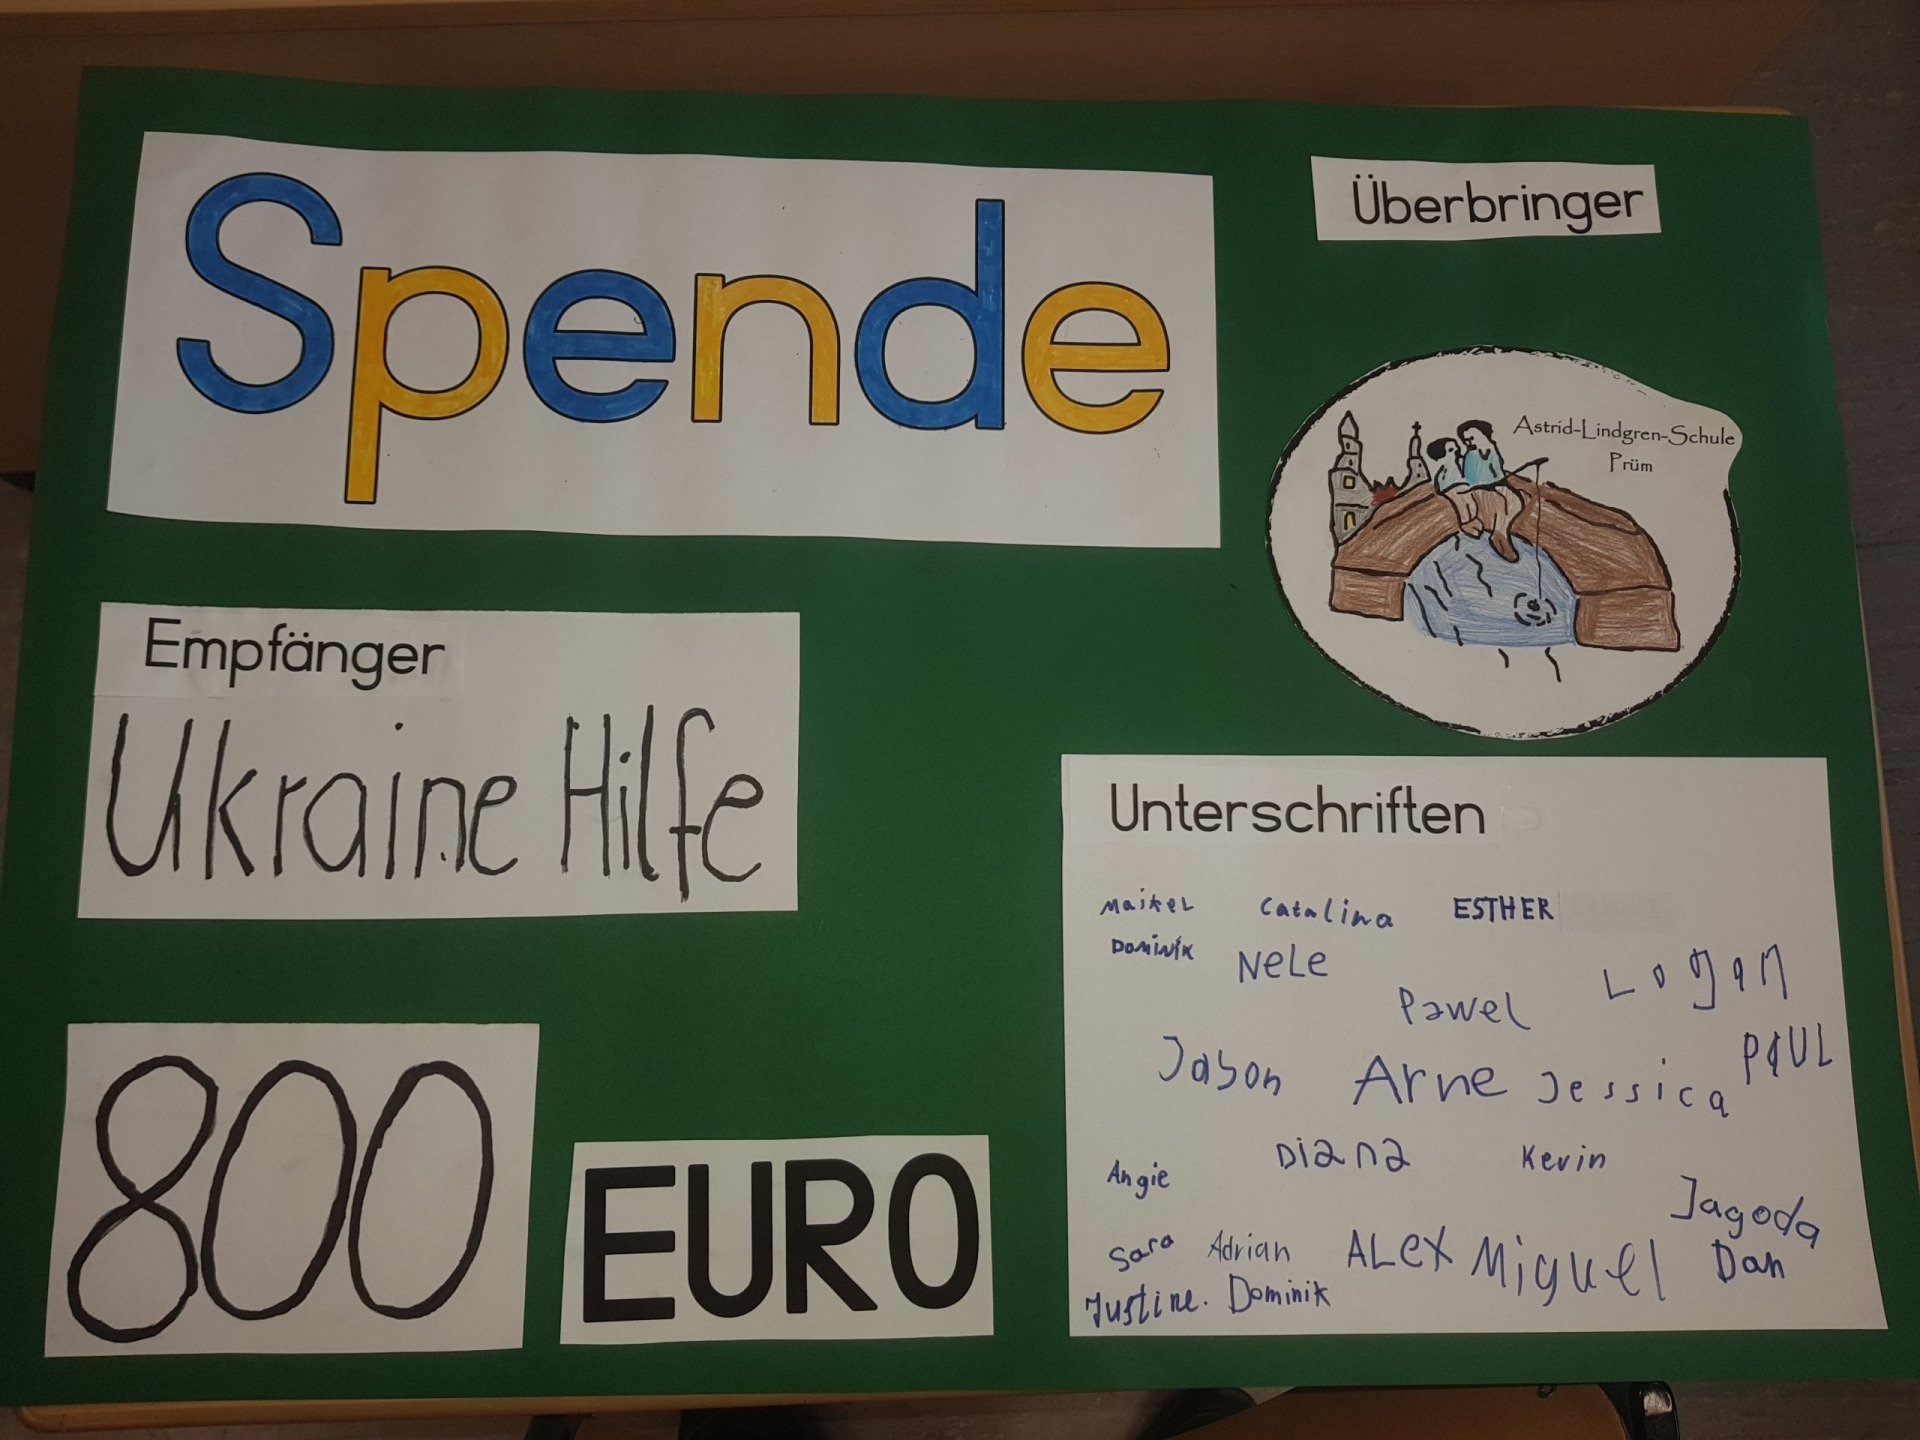 Spende
Überbringer
Astrid-Lindgren-Schule
Prüm
Empfänger
Ukraine Hilfe
800 EURO
Unterschriften
Maikel Catalina ESTHER
Dominik NeLe Logan
Pawel
Jason Arne Jessica PAUL
Angie Diana Kevin
Jagoda
Sara Adrian ALeX Miguel Dan
Justine. Dominik